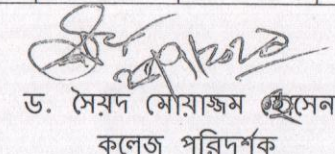 ড. সৈয়দ মোয়াজ্জম হুসেন
কলেজ পরিদর্শক